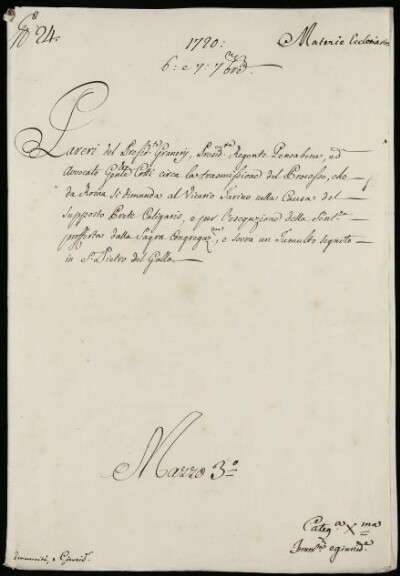 N.º 24.
Materie Ecclesiastiche
1720:
6: e 7: 7bre
Pareri del Presid.te Graneri, Presid.te Regente Pensabene, ed
Avvocato Gñle Corti circa la trasmissione del Processo, che
da Roma si dimanda al Vicario Tarino nella Causa del
supposto Prete Caligaris, e per l'esequzione della Sent.a
profferta dalla Sagra Congregaz.ne, e sovra un Tumulto seguito
in S. Pietro del Gallo.
Mazzo 3.º
Categ.a X.ma
Imm.tà e giurisd.e
Immunità, e Giurisd.